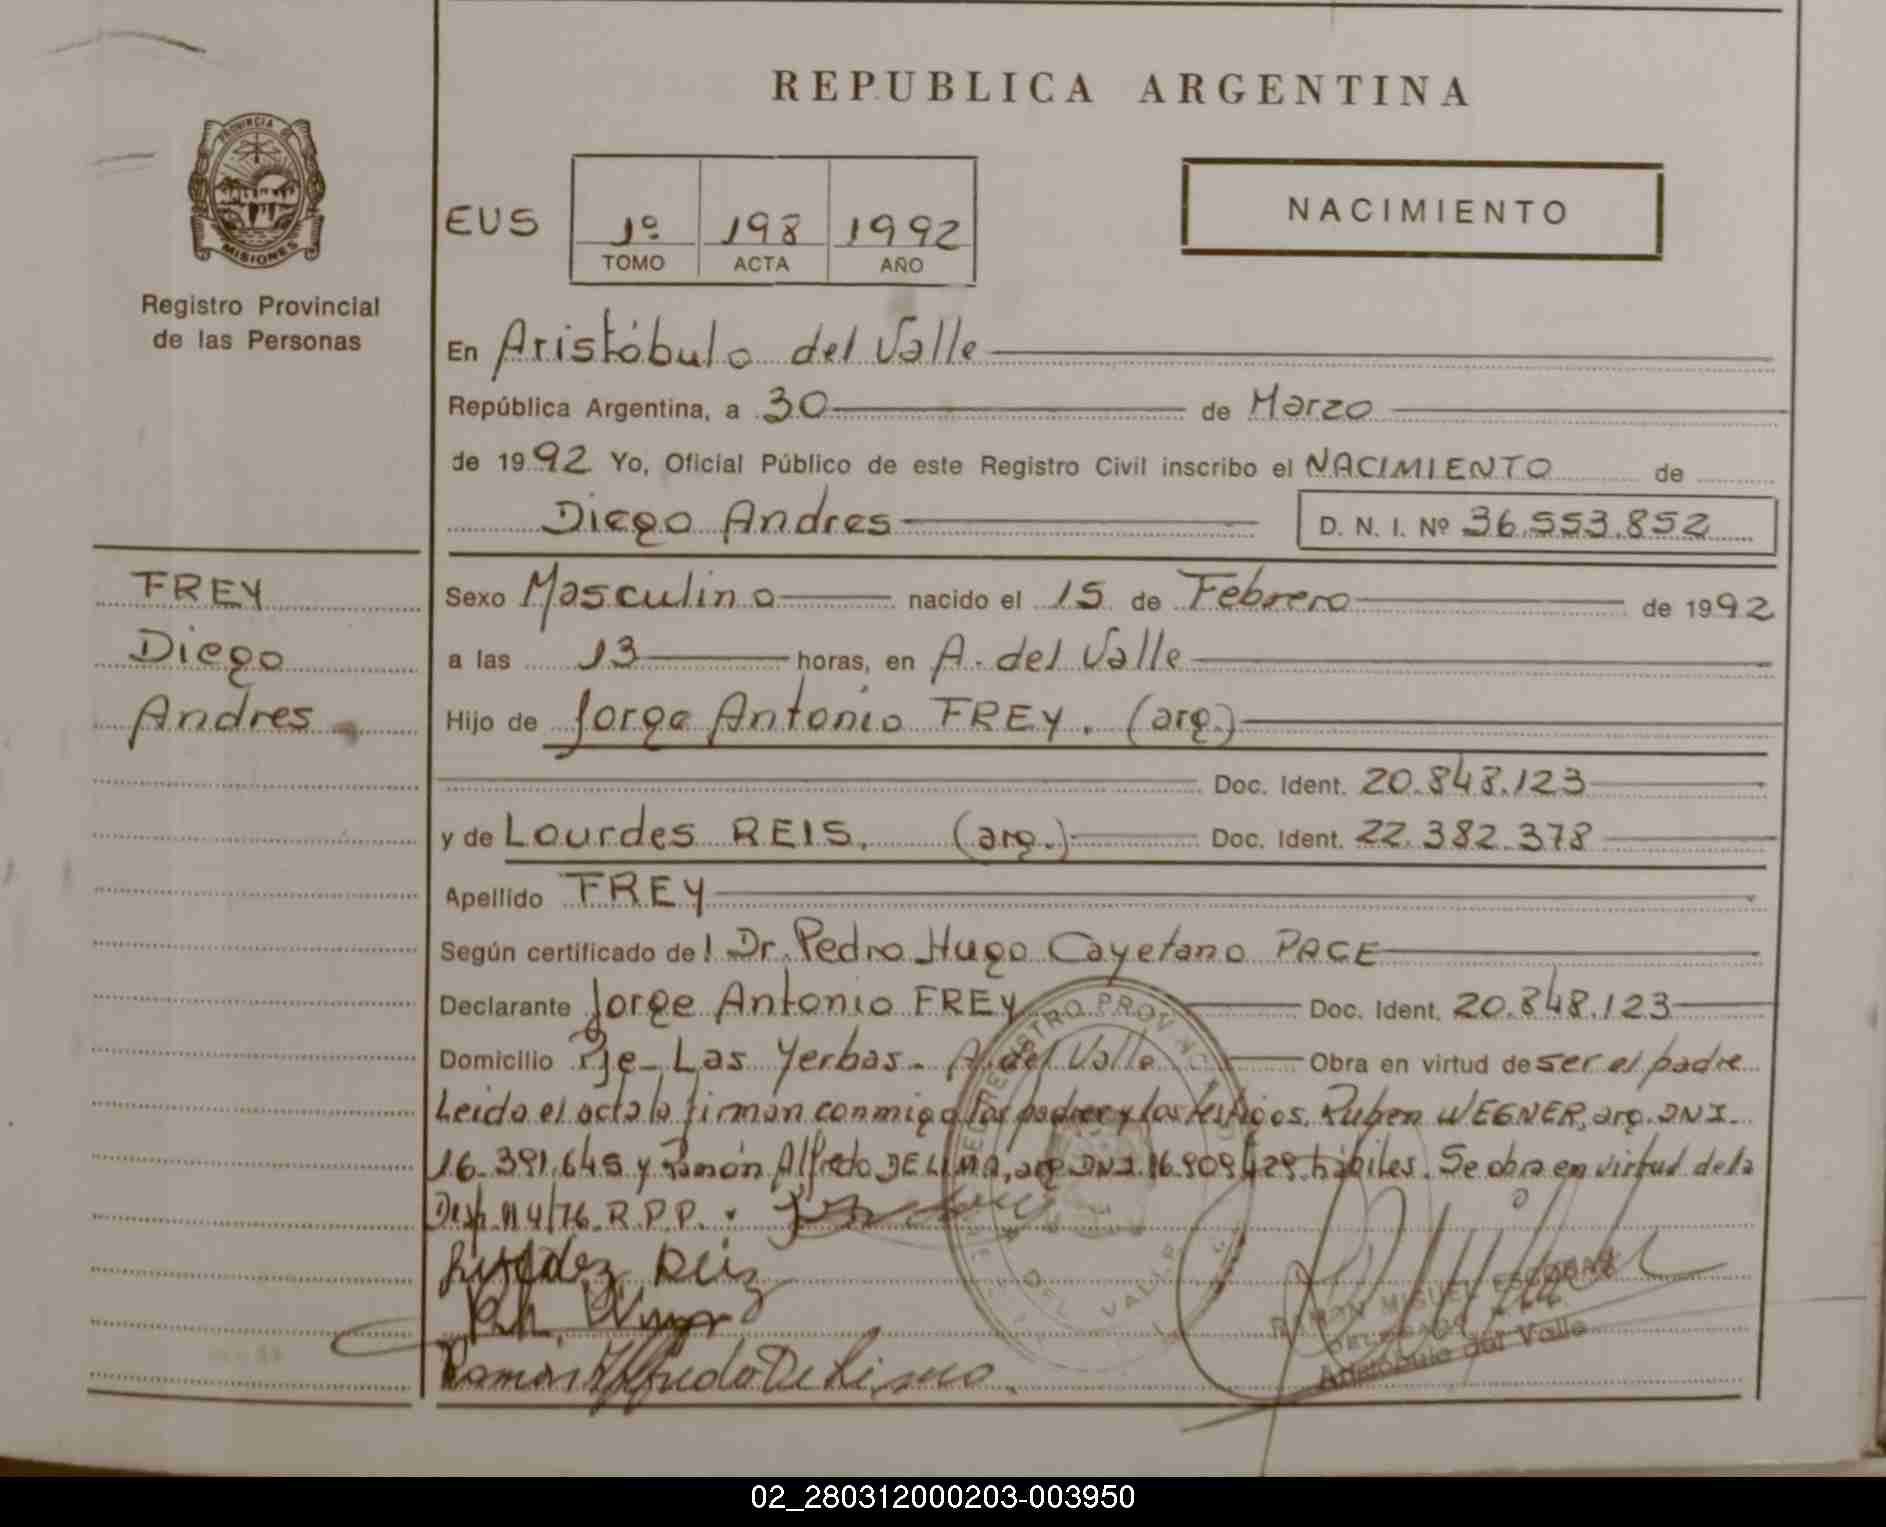 REPUBLICA ARGENTINA
PROVINCIA DE
MISIONES
Registro Provincial
de las Personas
EUS
1º 198 1992
TOMO ACTA AÑO
NACIMIENTO
En Aristóbulo del Valle
República Argentina, a 30 de Marzo
de 1992 Yo, Oficial Público de este Registro Civil inscribo el NACIMIENTO de
Diego Andres D. N. I. Nº 36.553.852
FREY
Diego
Andres
Sexo Masculino nacido el 15 de Febrero de 1992
a las 13 horas, en A. del Valle
Hijo de Jorge Antonio FREY. (arg.)
Doc. Ident. 20.848.123
y de Lourdes REIS. (arg.) Doc. Ident. 22.382.378
Apellido FREY
Según certificado del Dr. Pedro Hugo Cayetano PACE
Declarante Jorge Antonio FREY Doc. Ident. 20.848.123
Domicilio Pje_ Las Yerbas_ A. del Valle Obra en virtud de ser el padre
Leida el acta la firman conmigo los padres y los testigos. Ruben WEGNER, arg. DNI_
16.391.645 y Ramón Alfredo DE LIMA, arg DNI.16.909.429 hábiles. Se obra en virtud de la
Disp. 114/76. R.P.P.
REGISTRO PROVINCIAL
DEL VALLE
RAMON MIGUEL ESCOBAR
DELEGADO
Aristóbulo del Valle
Ramon Alfredo De Lima.
02_280312000203-003950